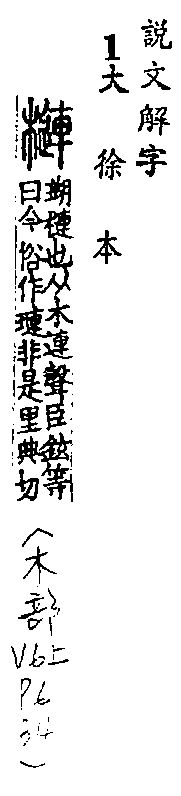 說文解字
1大徐本
槤 瑚槤也从木連聲臣鉉等
曰今俗作璉非是里典切
(木部
V6上
P6
34)